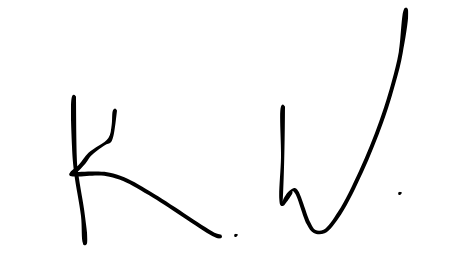 K. W.